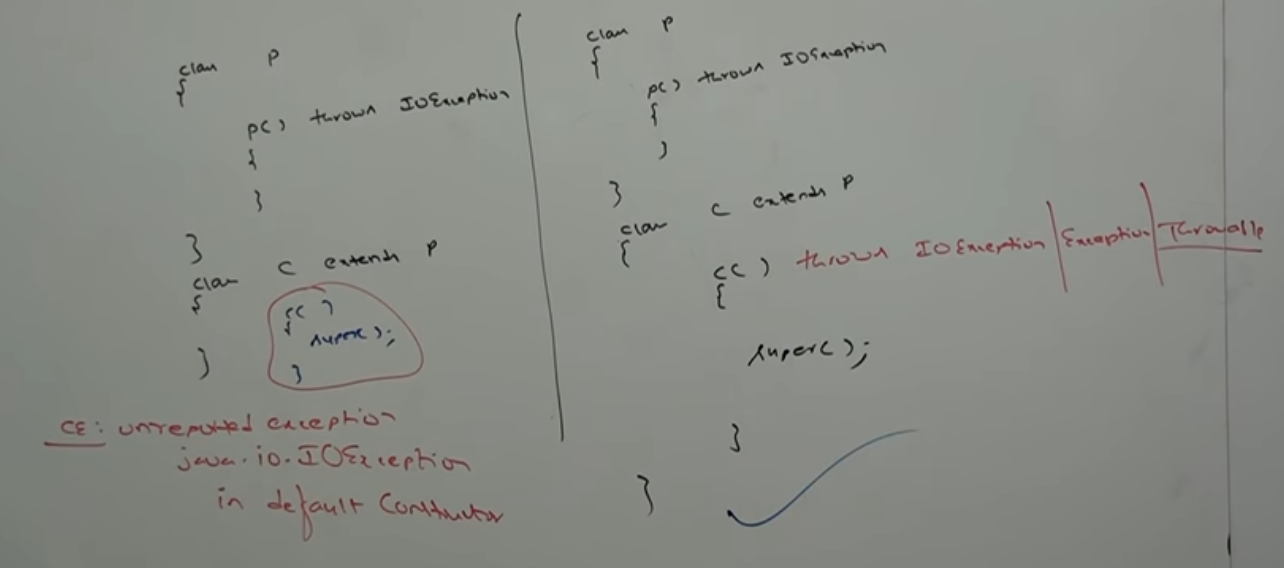 class P
{
P() throws IOException
{
}
}
class C extends P
{
C()
{
super();
}
}
CE: unreported exception
java.io.IOException
in default Constructor
class P
{
P() throws IOException
{
}
}
class C extends P
{
C() throws IOException | Exception | Throwable
{
super();
}
}